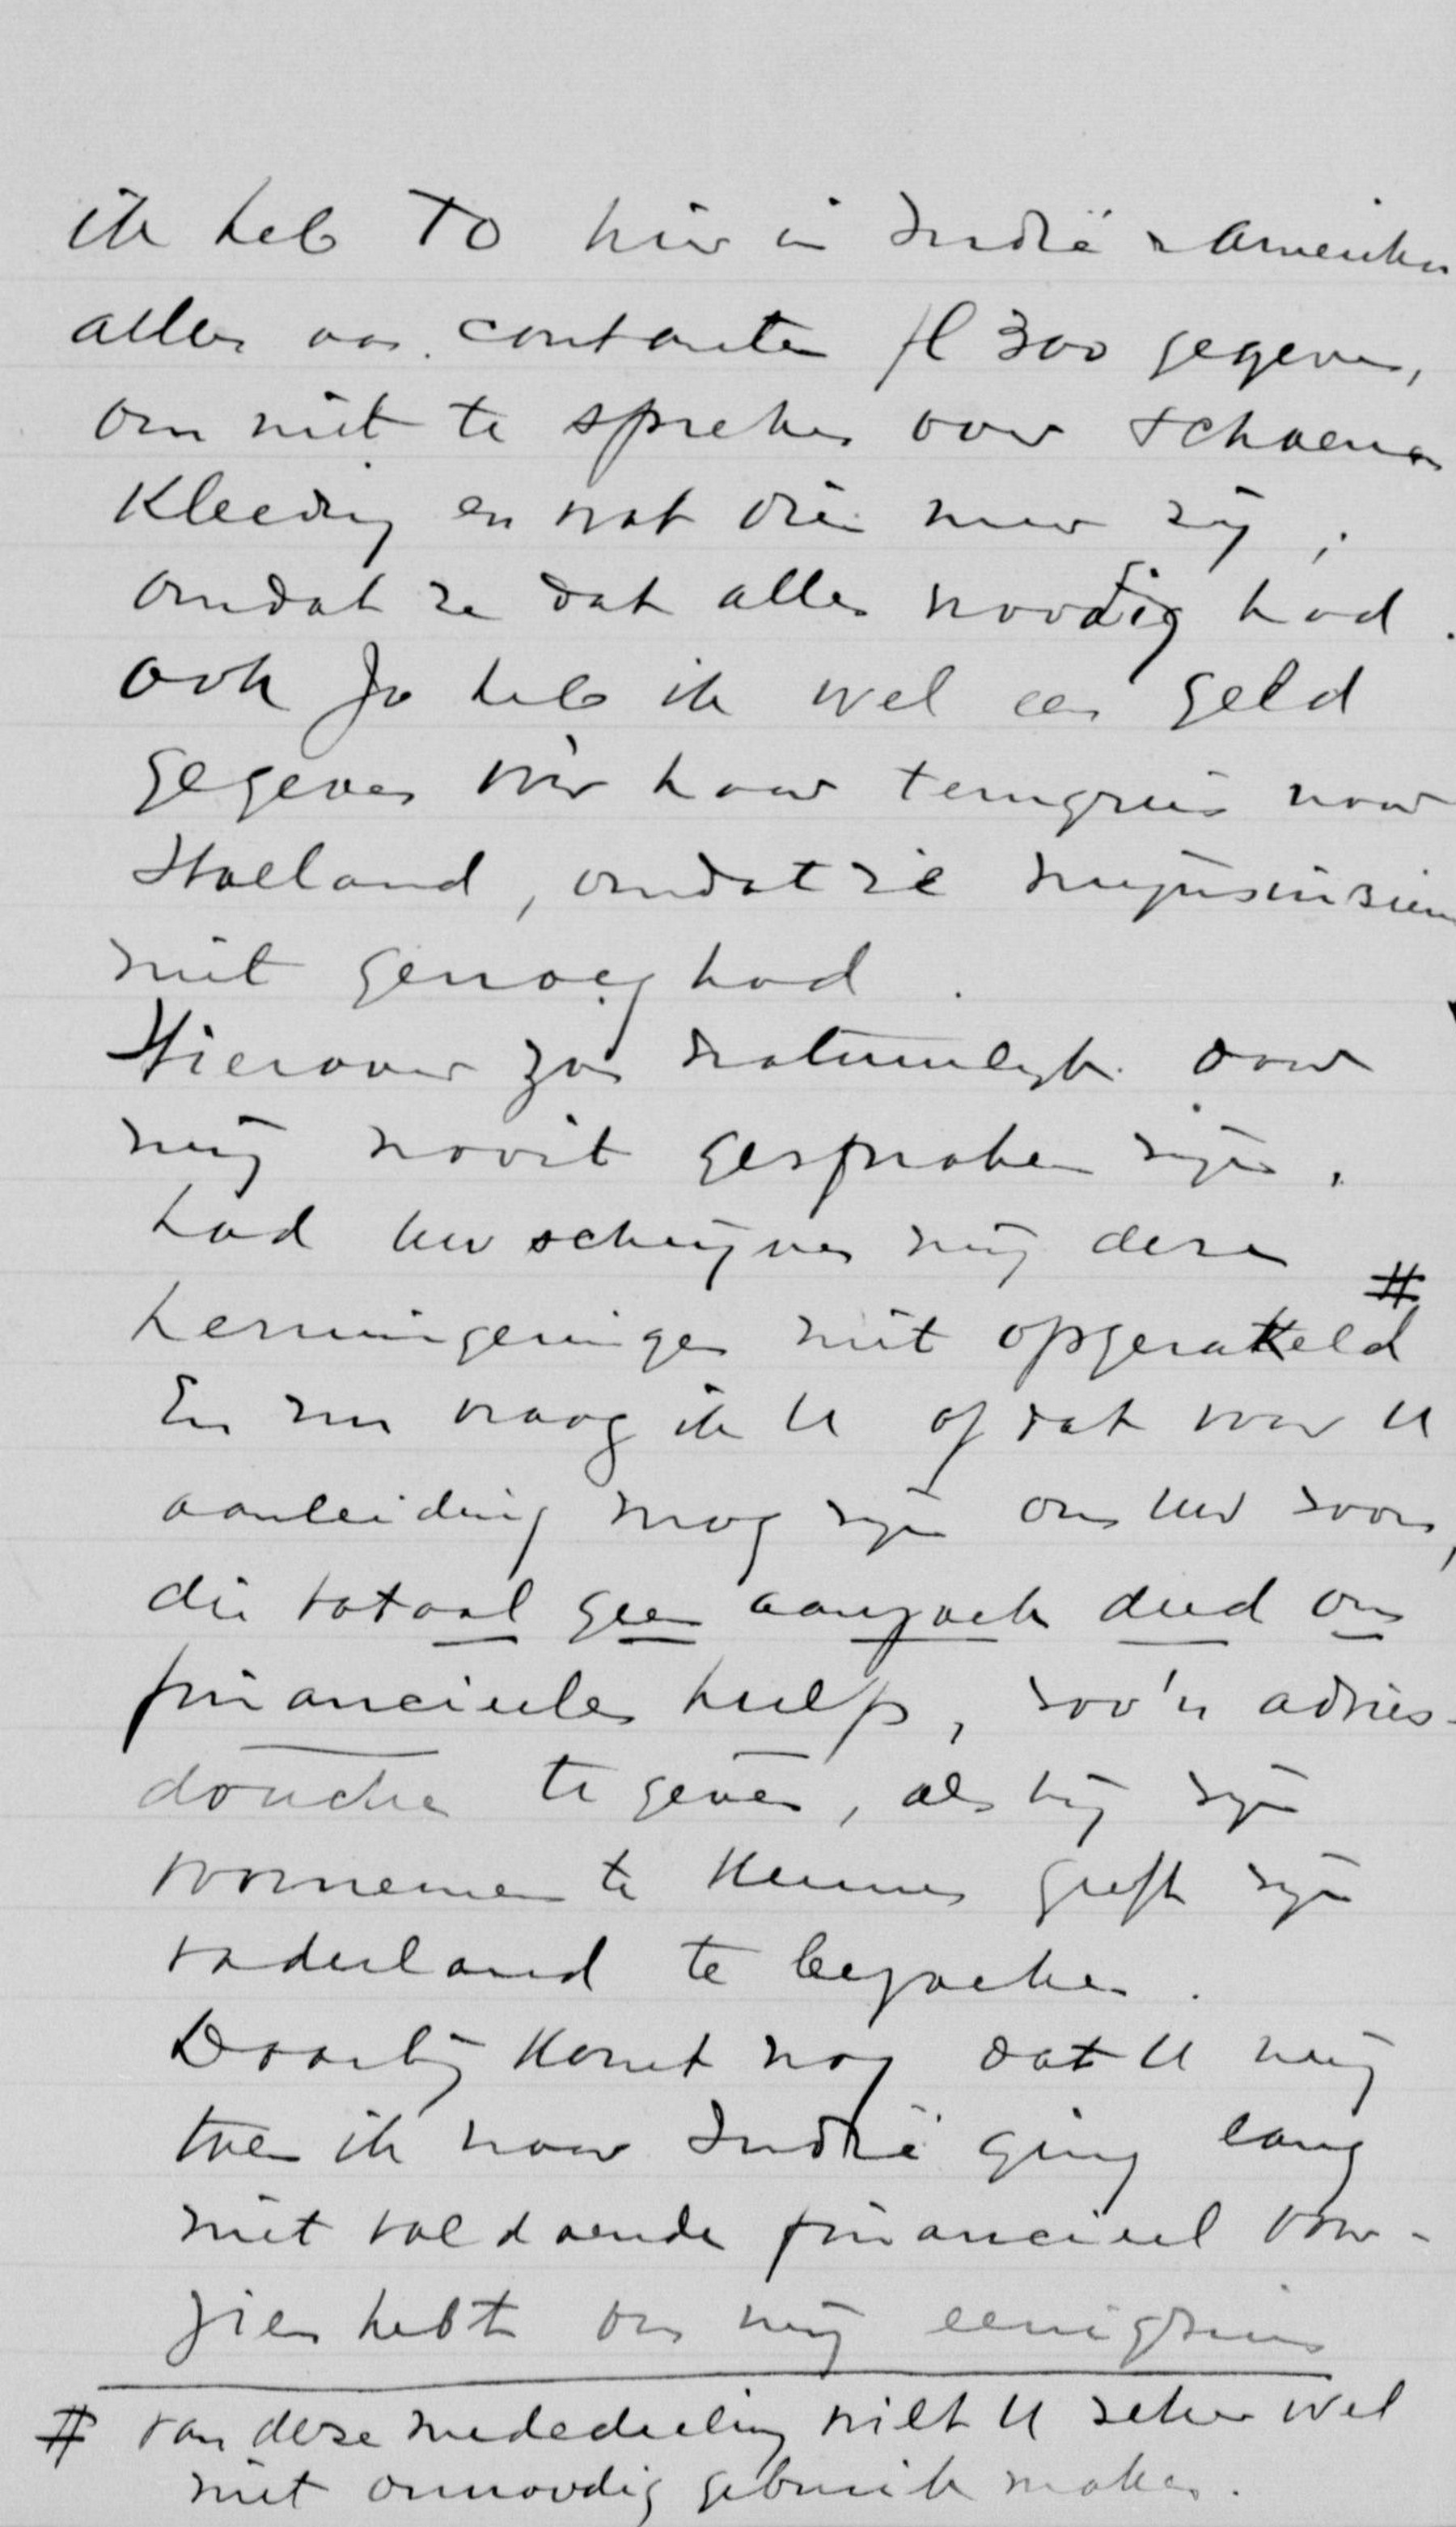 ik heb TO hier in Indië & Amerika
alleen aan contanten fl 300 gegeven,
om niet te spreken over schoenen
kleeding en wat dies meer zij,
omdat ze dat alles noodig had.
Ook Jo heb ik wel eens geld
gegeven voor haar terugreis naar
Holland, omdat ze mijns inziens
niet genoeg had.
Hierover zou natuurlijk door
mij nooit gesproken zijn,
had uw schrijven mij deze
herinneringen niet opgerakeld #
En nu vraag ik U of dat voor U
aanleiding mag zijn om uw zoon,
die totaal geen aanzoek deed om
financieele hulp, zoo'n adres-
douche te geven, als hij zijn
voornemen te kennen geeft zijn
vaderland te bezoeken.
Daarbij komt nog dat U mij
toen ik naar Indië ging lang
niet voldoende financieel voor-
zien hebt om mij eenigszins
# van deze mededeeling wilt U zeker wel
niet onnoodig gebruik maken.